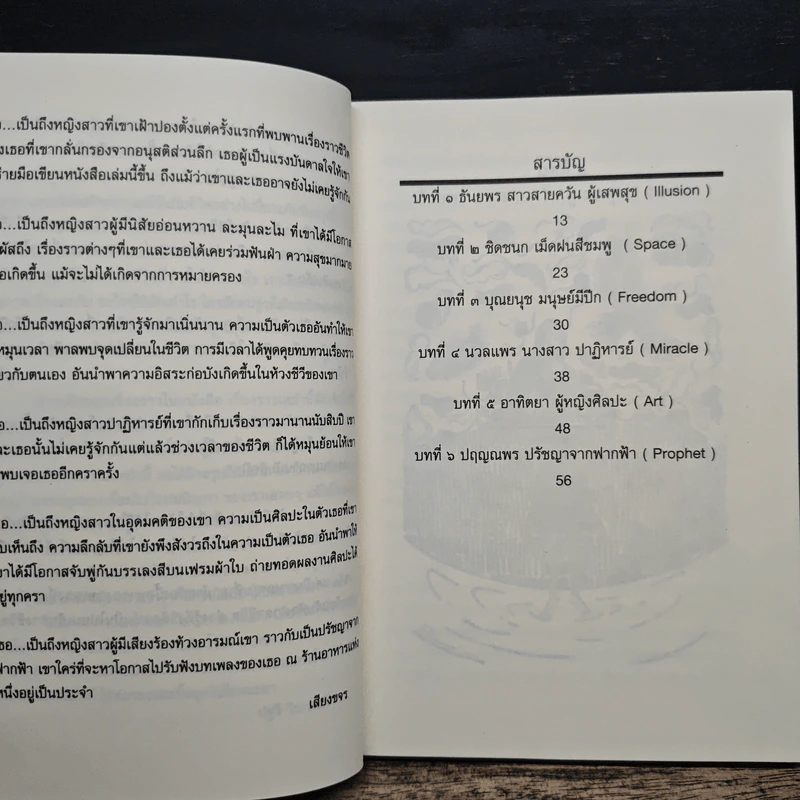 ...เป็นถึงหญิงสาวที่เขาเฝ้าปองตั้งแต่ครั้งแรกที่พบพานเรื่องราวชีวิต
งเธอที่เขากลั่นกรองจากอนุสติส่วนลึก เธอผู้เป็นแรงบันดาลใจให้เขา
ร่ายมือเขียนหนังสือเล่มนี้ขึ้น ถึงแม้ว่าเขาและเธออาจยังไม่เคยรู้จักกัน
...เป็นถึงหญิงสาวผู้มีนิสัยอ่อนหวาน ละมุนละไม ที่เขาได้มีโอกาส
ผัสถึง เรื่องราวต่างๆที่เขาและเธอได้เคยร่วมฟันฝ่า ความสุขมากมาย
อเกิดขึ้น แม้จะไม่ได้เกิดจากการหมายครอง
อ...เป็นถึงหญิงสาวที่เขารู้จักมาเนิ่นนาน ความเป็นตัวเธออันทำให้เขา
หมุนเวลา พาลพบจุดเปลี่ยนในชีวิต การมีเวลาได้พูดคุยทบทวนเรื่องราว
ยวกับตนเอง อันนำพาความอิสระก่อบังเกิดขึ้นในห้วงชีวีของเขา
อ...เป็นถึงหญิงสาวปาฏิหารย์ที่เขากักเก็บเรื่องราวมานานนับสิบปี เขา
ละเธอนั้นไม่เคยรู้จักกันแต่แล้วช่วงเวลาของชีวิต ก็ได้หมุนย้อนให้เขา
พบเจอเธออีกคราครั้ง
อ...เป็นถึงหญิงสาวในอุดมคติของเขา ความเป็นศิลปะในตัวเธอที่เขา
บเห็นถึง ความลึกลับที่เขายังพึงสังวรถึงในความเป็นตัวเธอ อันนำพาให้
ขาได้มีโอกาสจับพู่กันบรรเลงสีบนเฟรมผ้าใบ ถ่ายทอดผลงานศิลปะได้
ยู่ทุกครา
ธอ...เป็นถึงหญิงสาวผู้มีเสียงร้องท้วงอารมณ์เขา ราวกับเป็นปรัชญาจาก
ฟากฟ้า เขาใคร่ที่จะหาโอกาสไปรับฟังบทเพลงของเธอ ณ ร้านอาหารแห่ง
หนึ่งอยู่เป็นประจำ
เสียงขจร
สารบัญ
บทที่ ๑ ธันยพร สาวสายควัน ผู้เสพสุข ( Illusion )
13
บทที่ ๒ ชิดชนก เม็ดฝนสีชมพู ( Space )
23
บทที่ ๓ บุณยนุช มนุษย์มีปีก ( Freedom )
30
บทที่ ๔ นวลแพร นางสาว ปาฏิหารย์ ( Miracle )
38
บทที่ ๕ อาทิตยา ผู้หญิงศิลปะ ( Art )
48
บทที่ ๖ ปฤญณพร ปรัชญาจากฟากฟ้า ( Prophet )
56